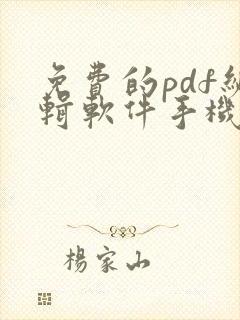 免費的pdf編
輯軟件手機
楊家山